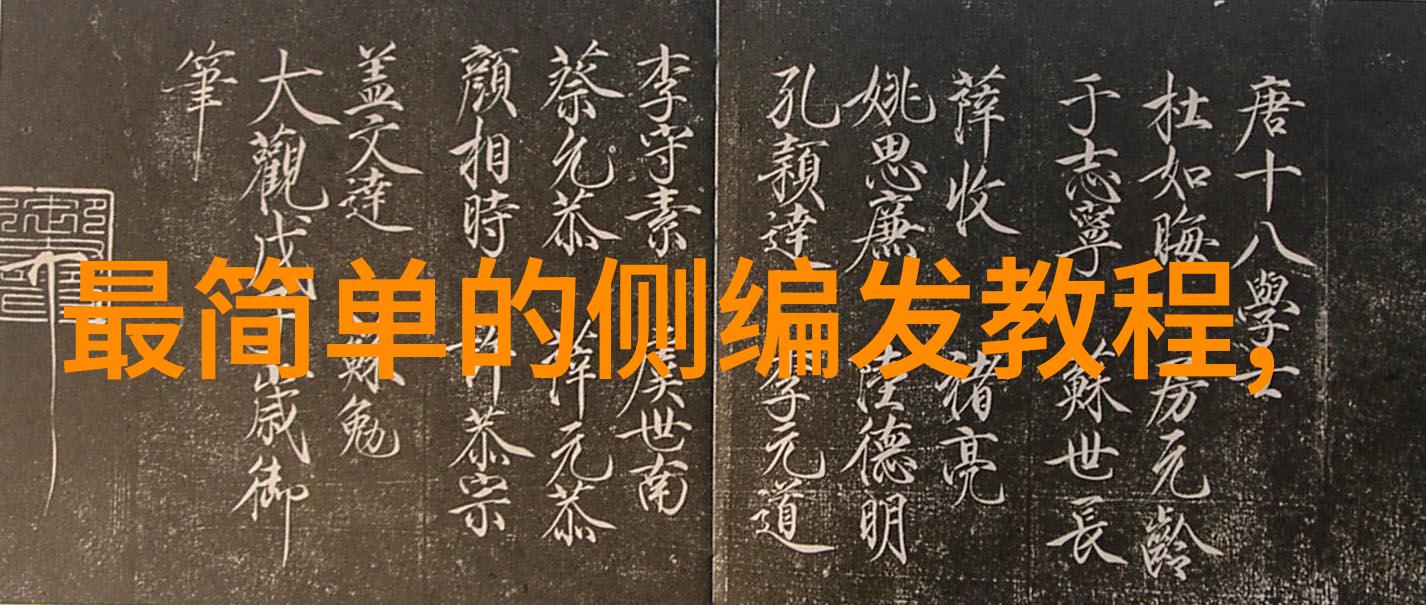 最简单的侧编发教程,
唐十八學士
杜如晦 房元齡
于志寧 蘇世長
薛收 褚亮
姚思廉 陸德明
孔穎達 李元道
李守素 虞世南
蔡允恭 薛元恭
顔相時 許恭宗
盖文達 蘇勉
大觀戊 歲御
筆